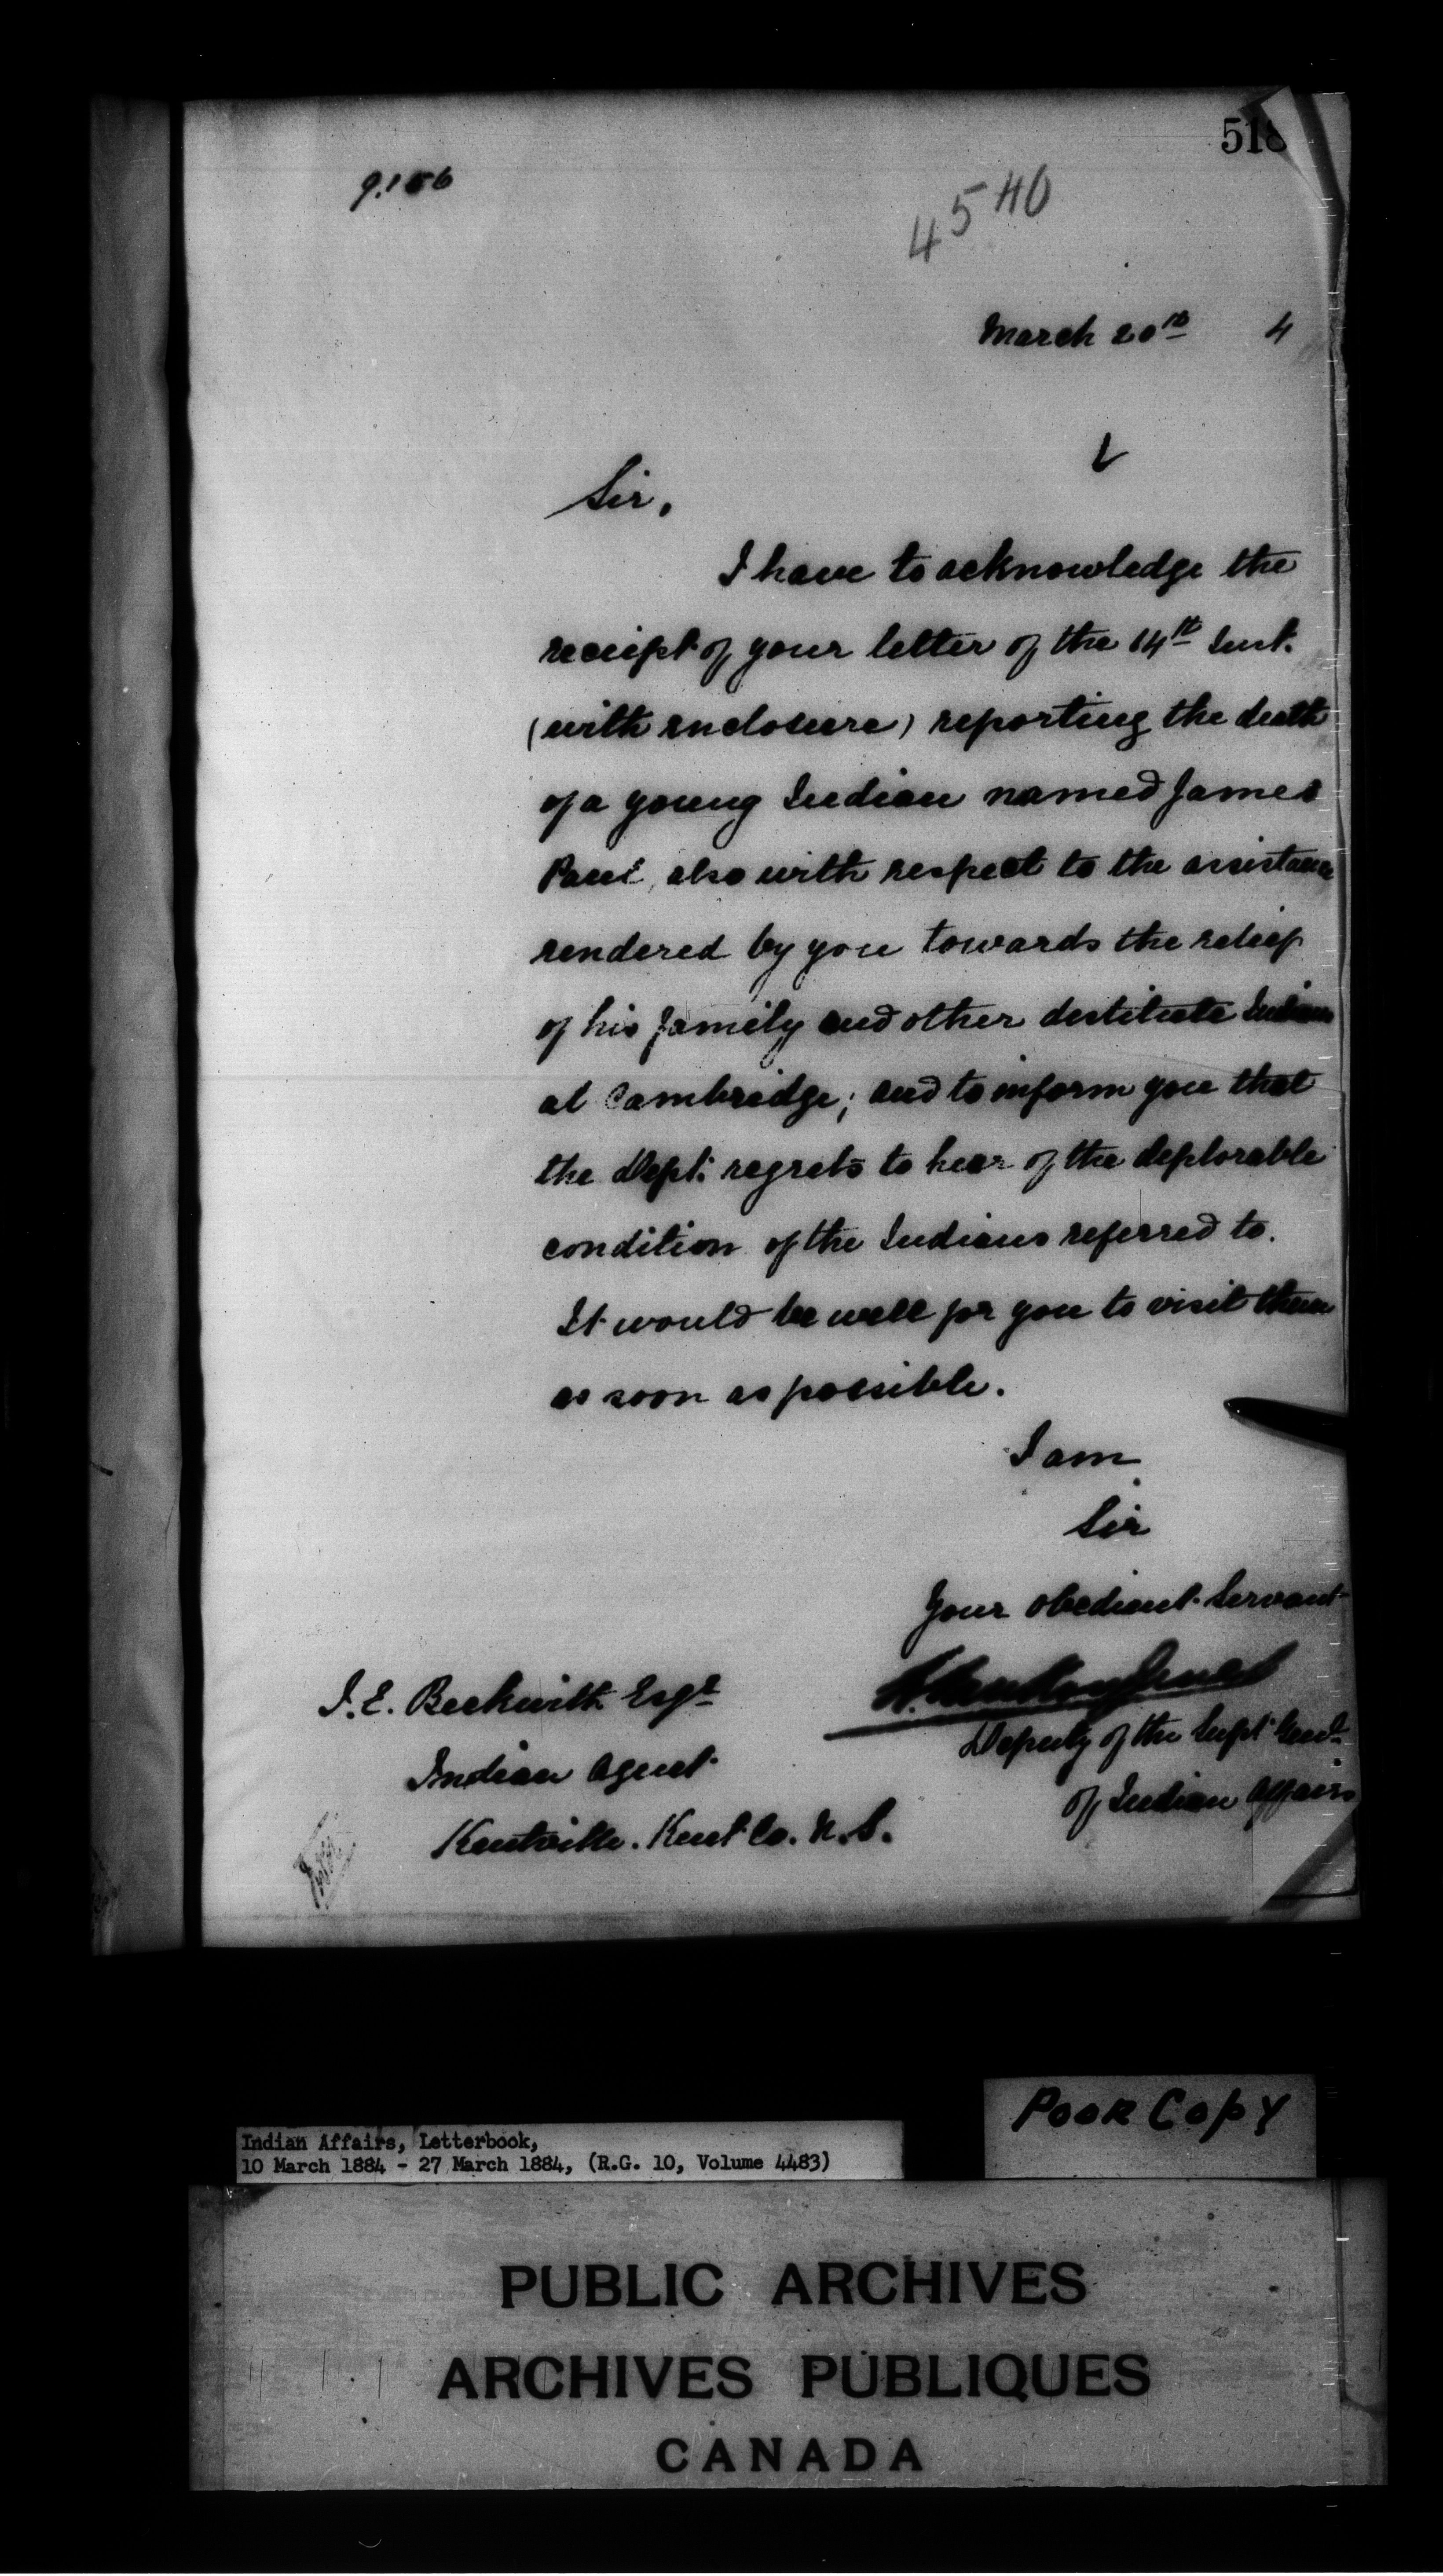 518
9.156
4540
March 20th 4
Sir,
I have to acknowledge the
receipt of your letter of the 14th Inst.
(with enclosure) reporting the death
of a young Indian named James
Paul, also with respect to the assistance
rendered by you towards the relief
of his family and other destitute Indians
at Cambridge; and to inform you that
the Dept. regrets to hear of the deplorable
condition of the Indians referred to.
It would be well for you to visit them
as soon as possible.
I am
Sir
Your obedient Servant
Deputy of the Supt. Genl.
of Indian Affairs
J. E. Beckwith Esqr
Indian Agent
Kentville. Kent Co. N.S.
Poor Copy
Indian Affairs, Letterbook,
10 March 1884 - 27 March 1884, (R.G. 10, Volume 4483)
PUBLIC ARCHIVES
ARCHIVES PUBLIQUES
CANADA